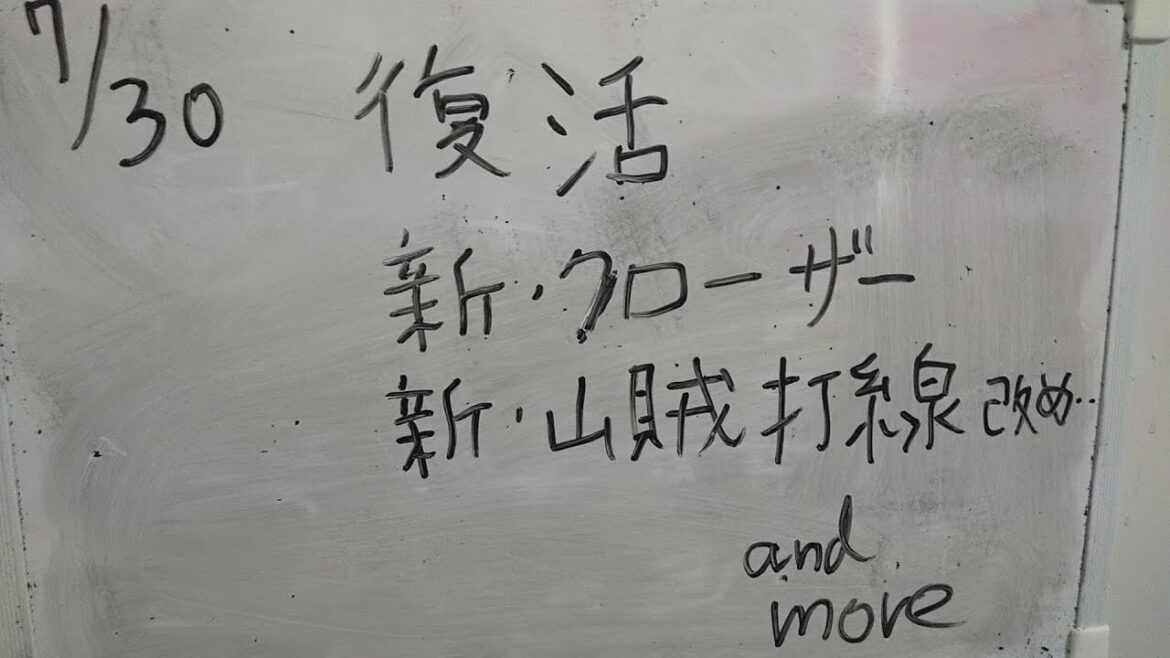 7/30 復活
新・クローザー
新・山賊打線 改め‥
and
more